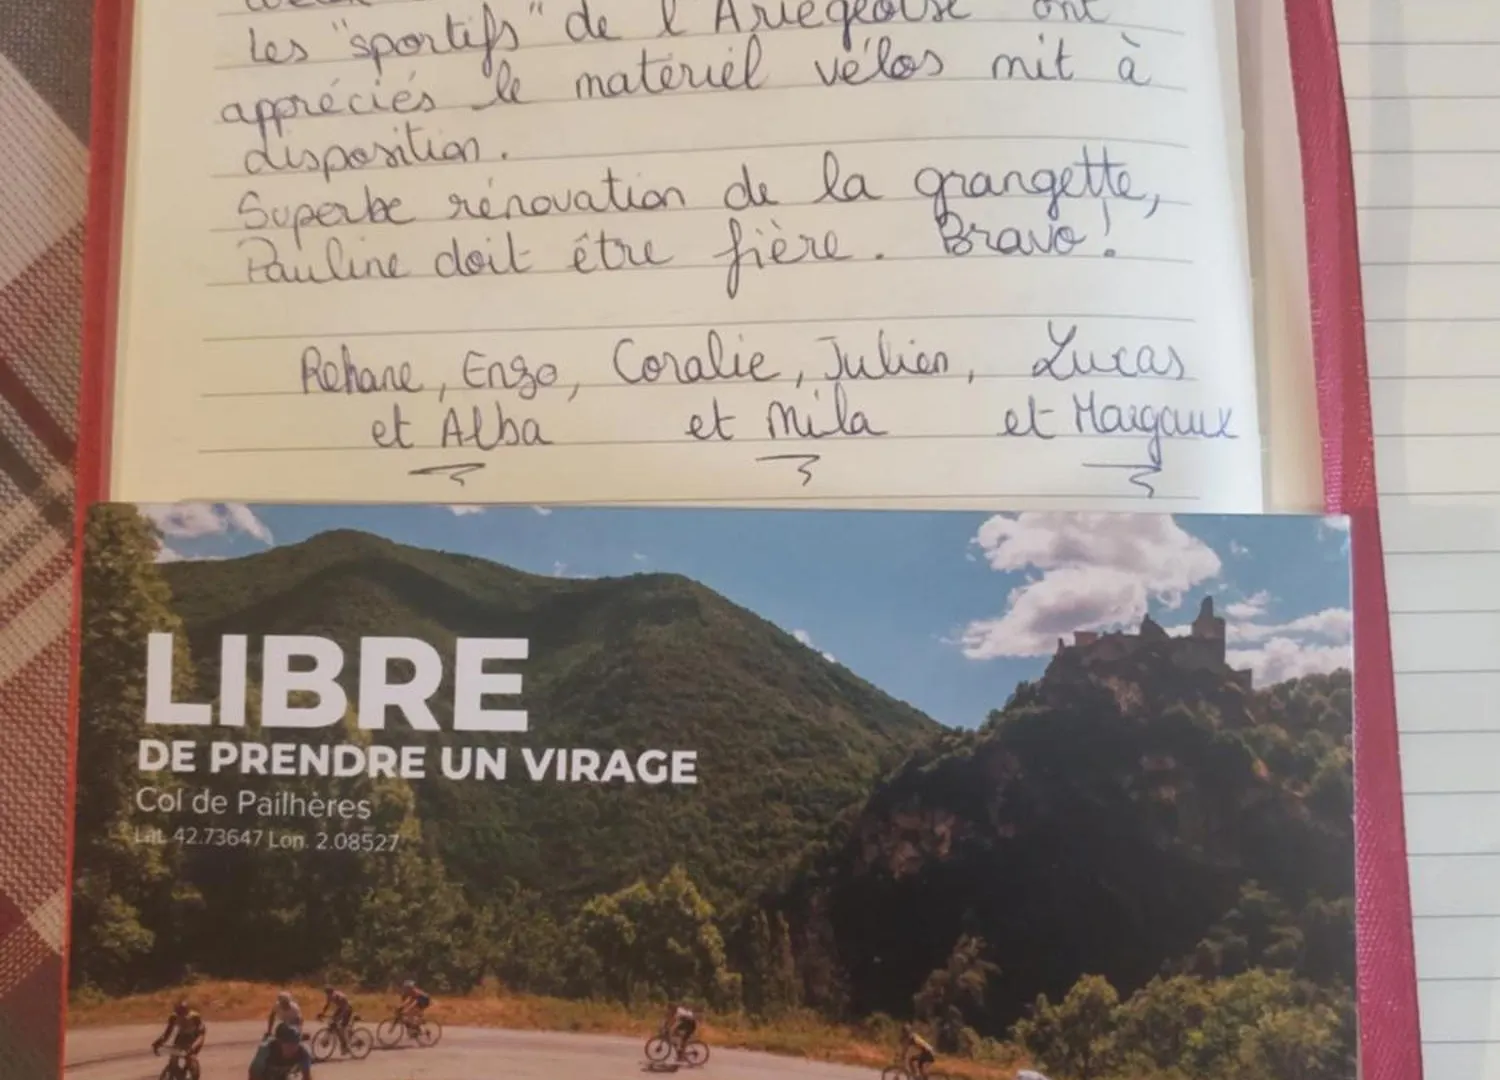 les "sportifs" de l'Ariégeoise ont
appréciés le matériel vélos mit à
disposition.
Superbe rénovation de la grangette,
Pauline doit être fière. Bravo !
Rehane, Enzo, Coralie, Julien, Lucas
et Alba et Mila et Margaux
LIBRE
DE PRENDRE UN VIRAGE
Col de Pailhères
Lat. 42.73647 Lon. 2.08527